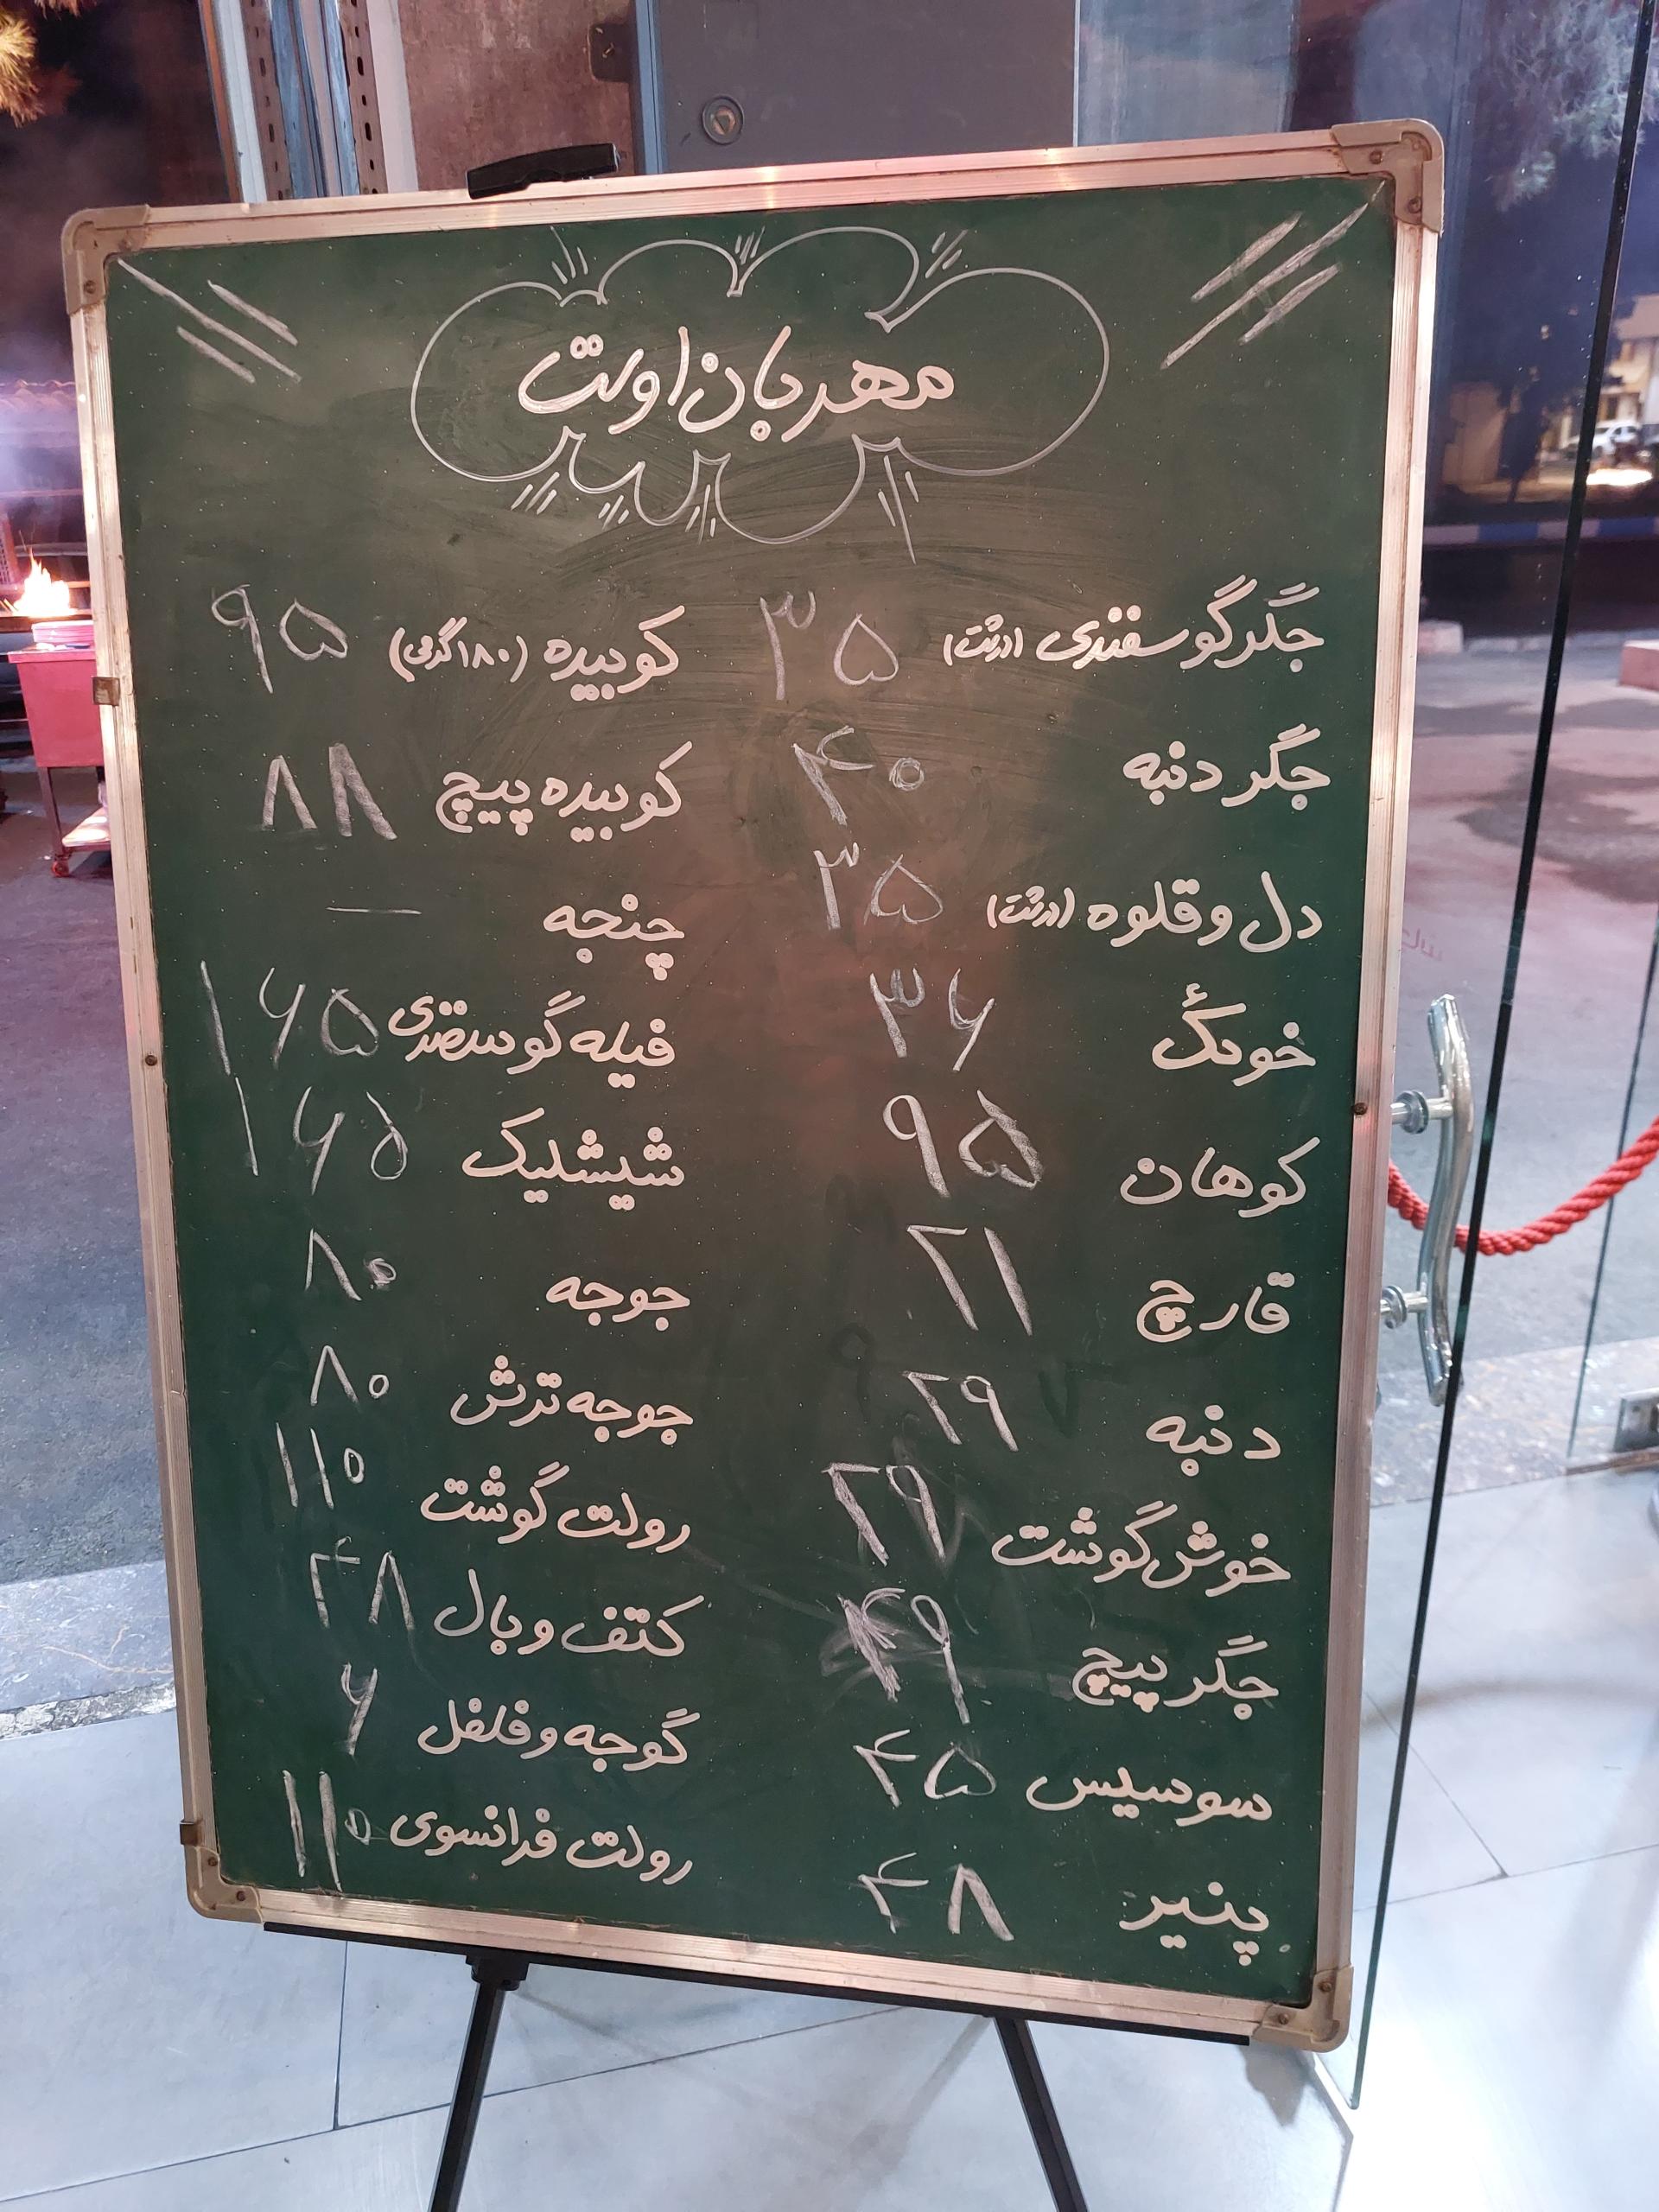 مهربان اوست
جگر گوسفندی (درشت) ۳۵
جگر دنبه ۴۰
دل و قلوه (درشت) ۳۵
خوئک ۳۶
کوهان ۹۵
قارچ ۲۱
دنبه ۲۹
خوش گوشت ۲۹
جگر پیچ ۴۹
سوسیس ۴۵
پنیر ۴۸
کوبیده (۱۸۰ گرمی) ۹۵
کوبیده پیچ ۸۸
چنجه —
فیله گوسفندی ۱۶۵
شیشلیک ۱۶۵
جوجه ۸۰
جوجه ترش ۸۰
رولت گوشت ۱۱۰
کتف و بال ۴۸
گوجه و فلفل ۶
رولت فرانسوی ۱۱۰